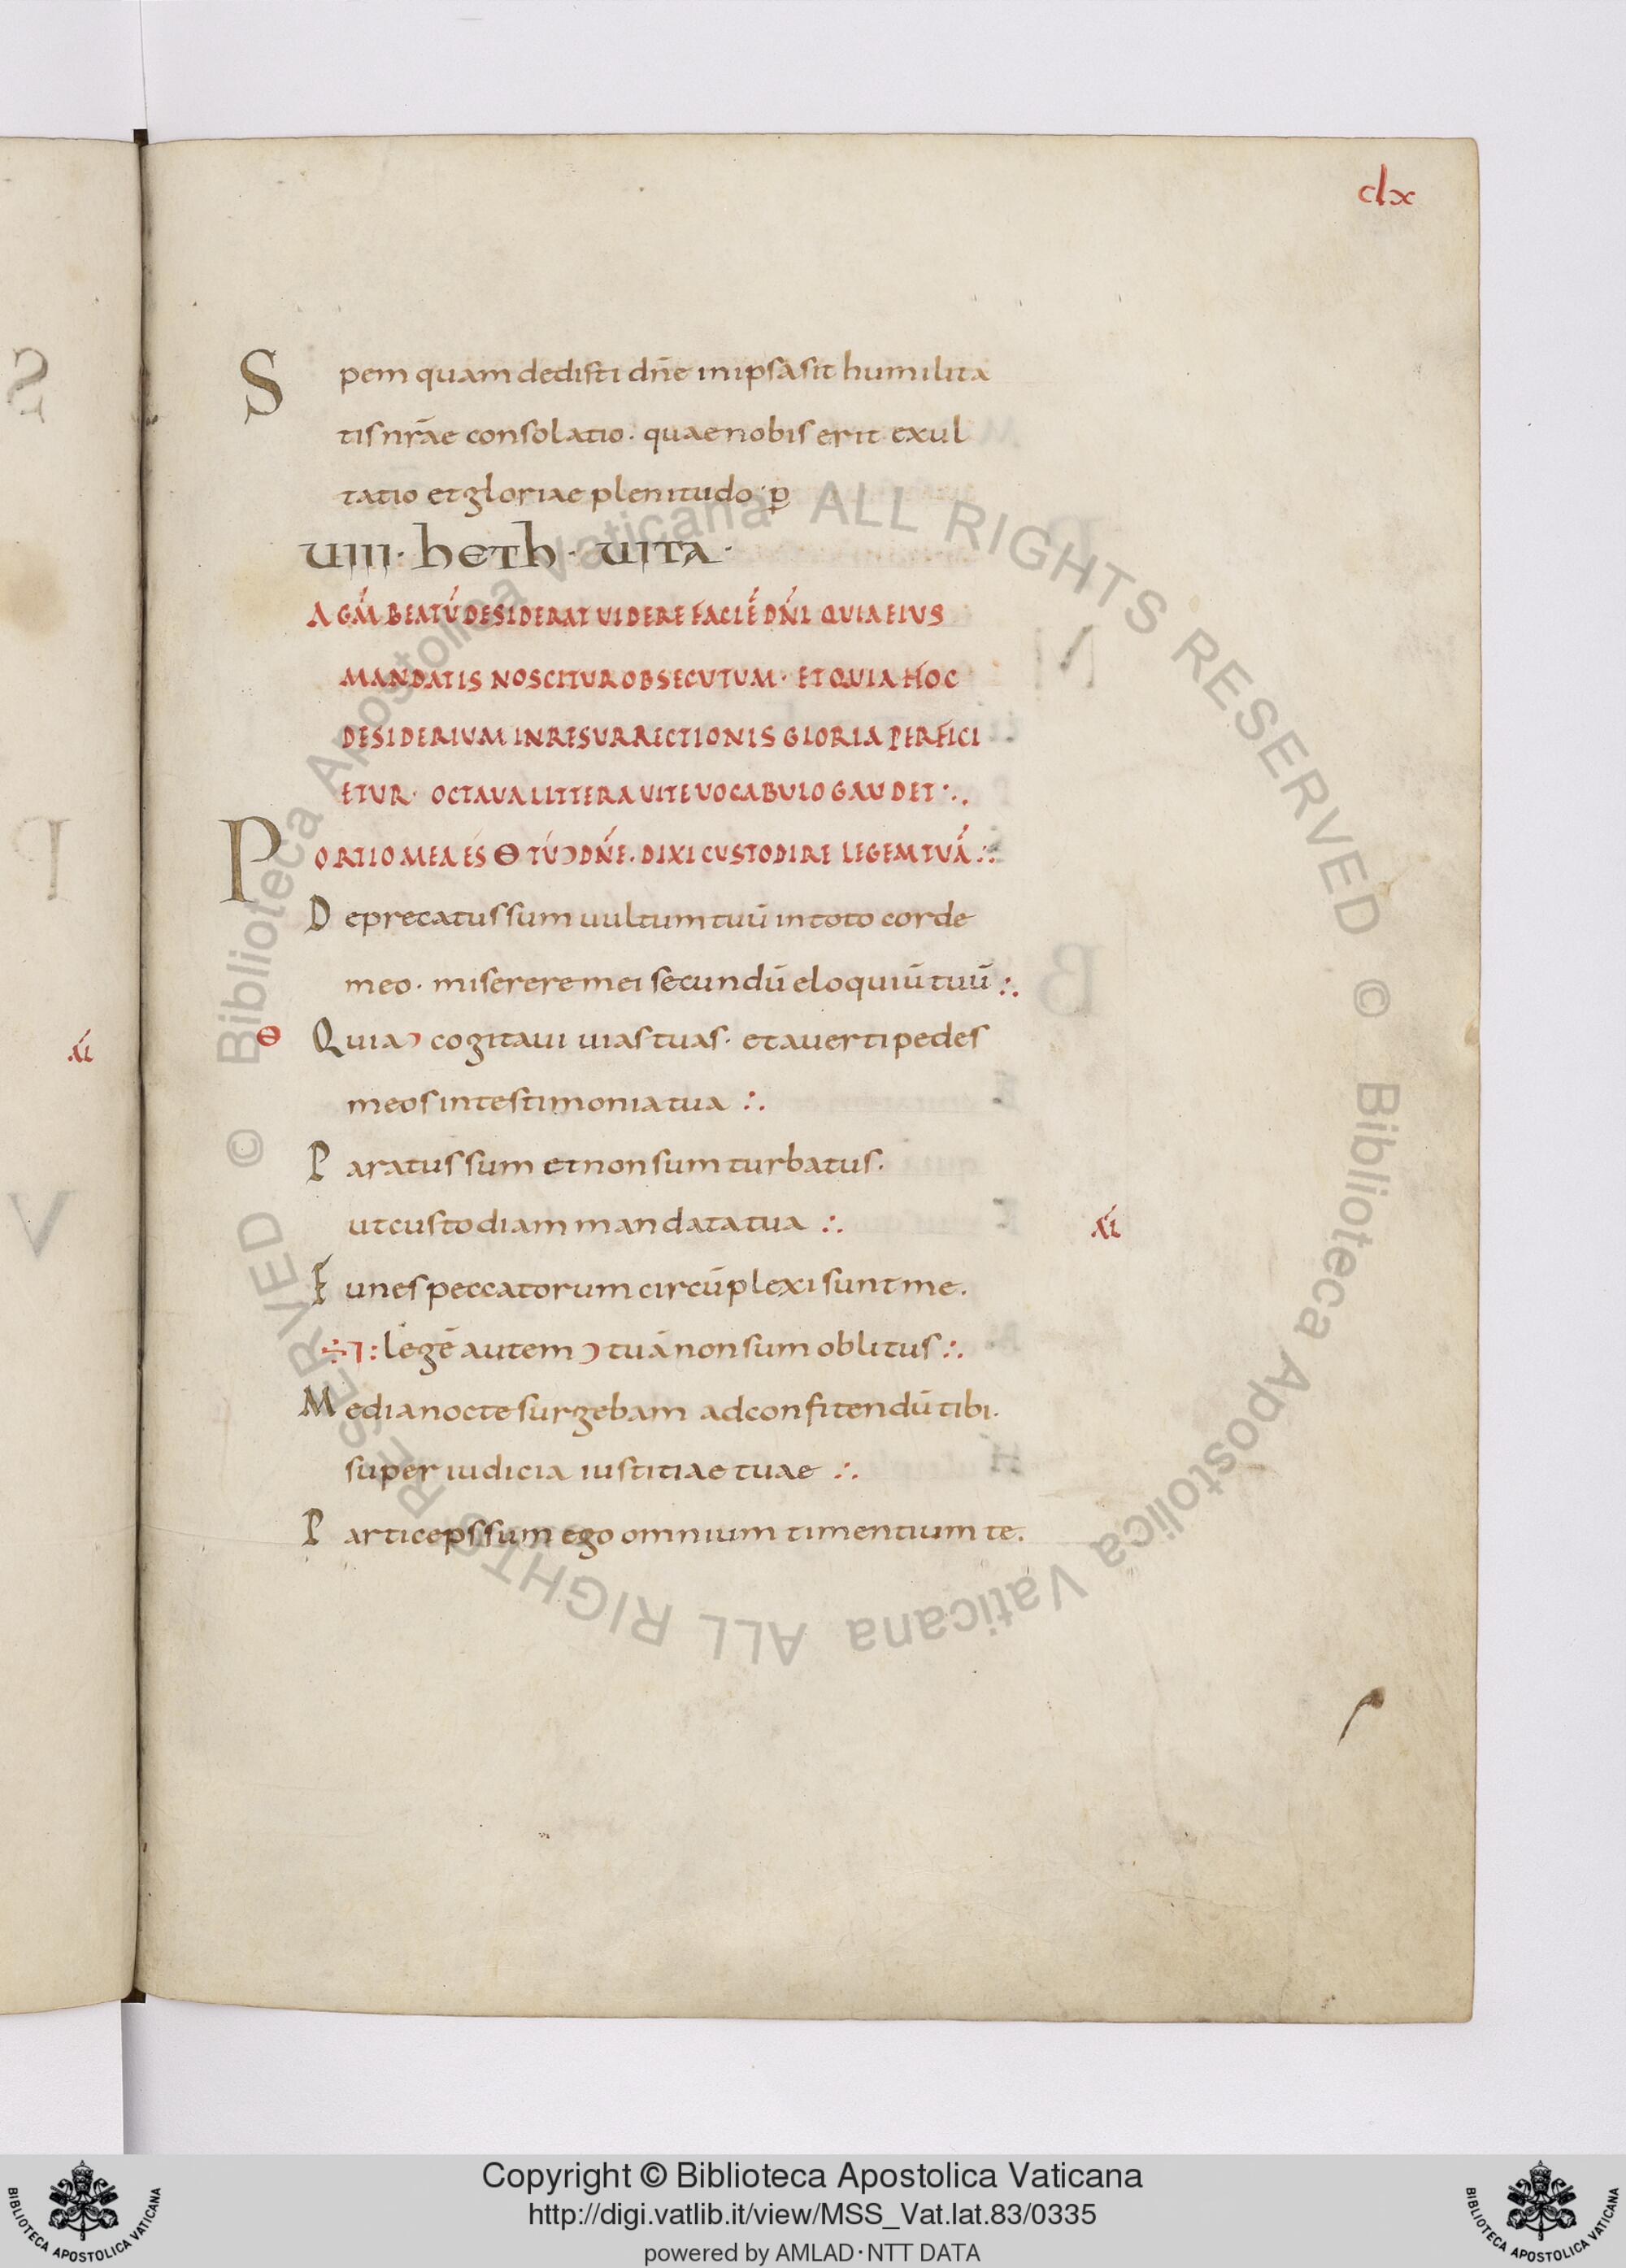 clx
Spem quam dedisti dn̄e in ipsa sit humilita
tis nr̄ae consolatio. quae nobis erit exul
tatio et gloriae plenitudo · p̱
UIII · heth · UITA ·
AGM̄ BEATŪ DESIDERAT UIDERE FACIĒ DN̄I QUIA EIUS
MANDATIS NOSCITUR OBSECUTUM · ET QUIA HOC
DESIDERIUM IN RESURRECTIONIS GLORIA PERFICI
ETUR · OCTAUA LITTERA UITE UOCABULO GAUDET ·.,
PORTIO MEA ES Ѳ TŪ Ɔ DN̄E. DIXI CUSTODIRE LEGEM TUĀ ∴
Deprecatus sum uultum tuū in toto corde
meo · miserere mei secundū eloquiū tuū ∴
Ѳ Quia ɔ cogitaui uias tuas · et auerti pedes
meos in testimonia tua ∴
Paratus sum et non sum turbatus.
ut custodiam mandata tua ∴
Funes peccatorum circūplexi sunt me.
÷ ⁊ : legē autem ɔ tuā non sum oblitus ∴
Media nocte surgebam ad confitendū tibi.
super iudicia iustitiae tuae ∴
Particeps sum ego omnium timentium te.
Biblioteca Apostolica Vaticana ALL RIGHTS RESERVED ©
Biblioteca Apostolica Vaticana ALL RIGHTS RESERVED ©
Copyright © Biblioteca Apostolica Vaticana
http://digi.vatlib.it/view/MSS_Vat.lat.83/0335
powered by AMLAD·NTT DATA
BIBLIOTECA APOSTOLICA VATICANA
BIBLIOTECA APOSTOLICA VATICANA